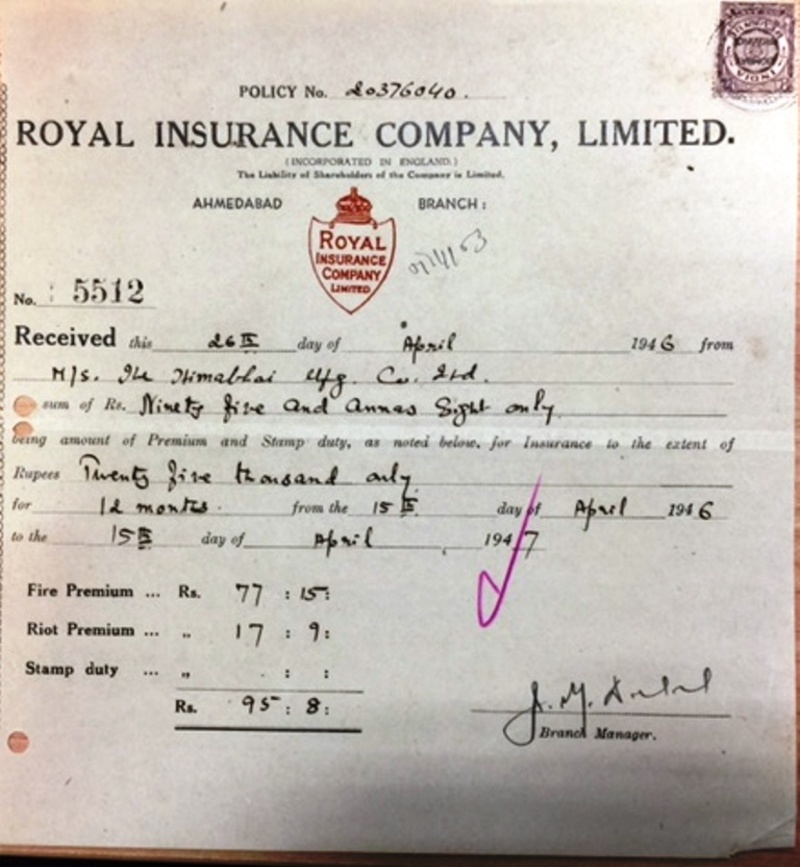 POLICY No. 20376040.
ROYAL INSURANCE COMPANY, LIMITED.
(INCORPORATED IN ENGLAND.)
The Liability of Shareholders of the Company is Limited.
AHMEDABAD BRANCH:
ROYAL
INSURANCE
COMPANY
LIMITED
No. 5512
Received this 26th day of April 1946 from
M/s. The Himabhai Mfg. Co. Ltd.
sum of Rs. Ninety five and annas Eight only
being amount of Premium and Stamp duty, as noted below, for Insurance to the extent of
Rupees Twenty five thousand only
for 12 months. from the 15th day of April 1946
to the 15th day of April 1947
Fire Premium ... Rs. 77 : 15 :
Riot Premium ... „ 17 : 9 :
Stamp duty ... „ : :
Rs. 95 : 8 :
Branch Manager.